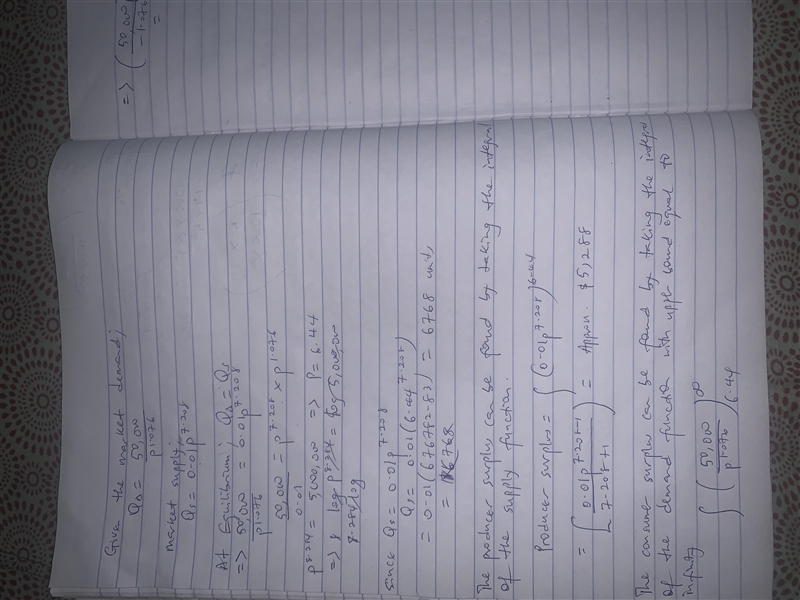 Given the market demand;
QD = 50,000 / P^1.076
market supply;
QS = 0.01P^7.208
At Equilibrium; QD = QS
=> 50,000 / P^1.076 = 0.01P^7.208
50,000 / 0.01 = P^7.208 × P^1.076
P^8.284 = 5,000,000 => P = 6.44
=> log P^8.284 = log 5,000,000
8.284 log
since QS = 0.01P^7.208
QS = 0.01(6.44^7.208)
= 0.01(676782.82) = 6768 units
= 6768
The producer surplus can be found by taking the integral
of the supply function.
Producer surplus = ∫(0.01P^7.208)^6.44
= [0.01P^7.208+1 / 7.208+1] = Approx. $5,288
The consumer surplus can be found by taking the integral
of the demand function with upper bound equal to
infinity
∫(50,000 / P^1.076)^∞ 6.44
=> (50,000 / -1.076
=